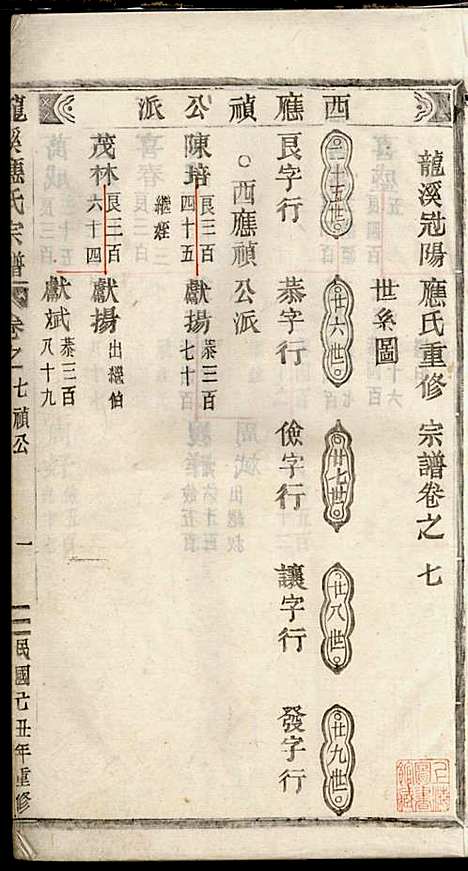 西應禎公派
龍溪冠陽應氏重修宗譜卷之七
世系圖
二十五世 廿六世 廿七世 廿八世 廿九世
良字行 恭字行 儉字行 讓字行 發字行
○西應禎公派
陳培 良三百四十五 繼姪
獻揚 恭三百七十
茂林 良三百六十四
獻揚 出繼伯
獻斌 恭三百八十九
龍溪應氏宗譜 卷之七 禎公 一 民國己丑年重修